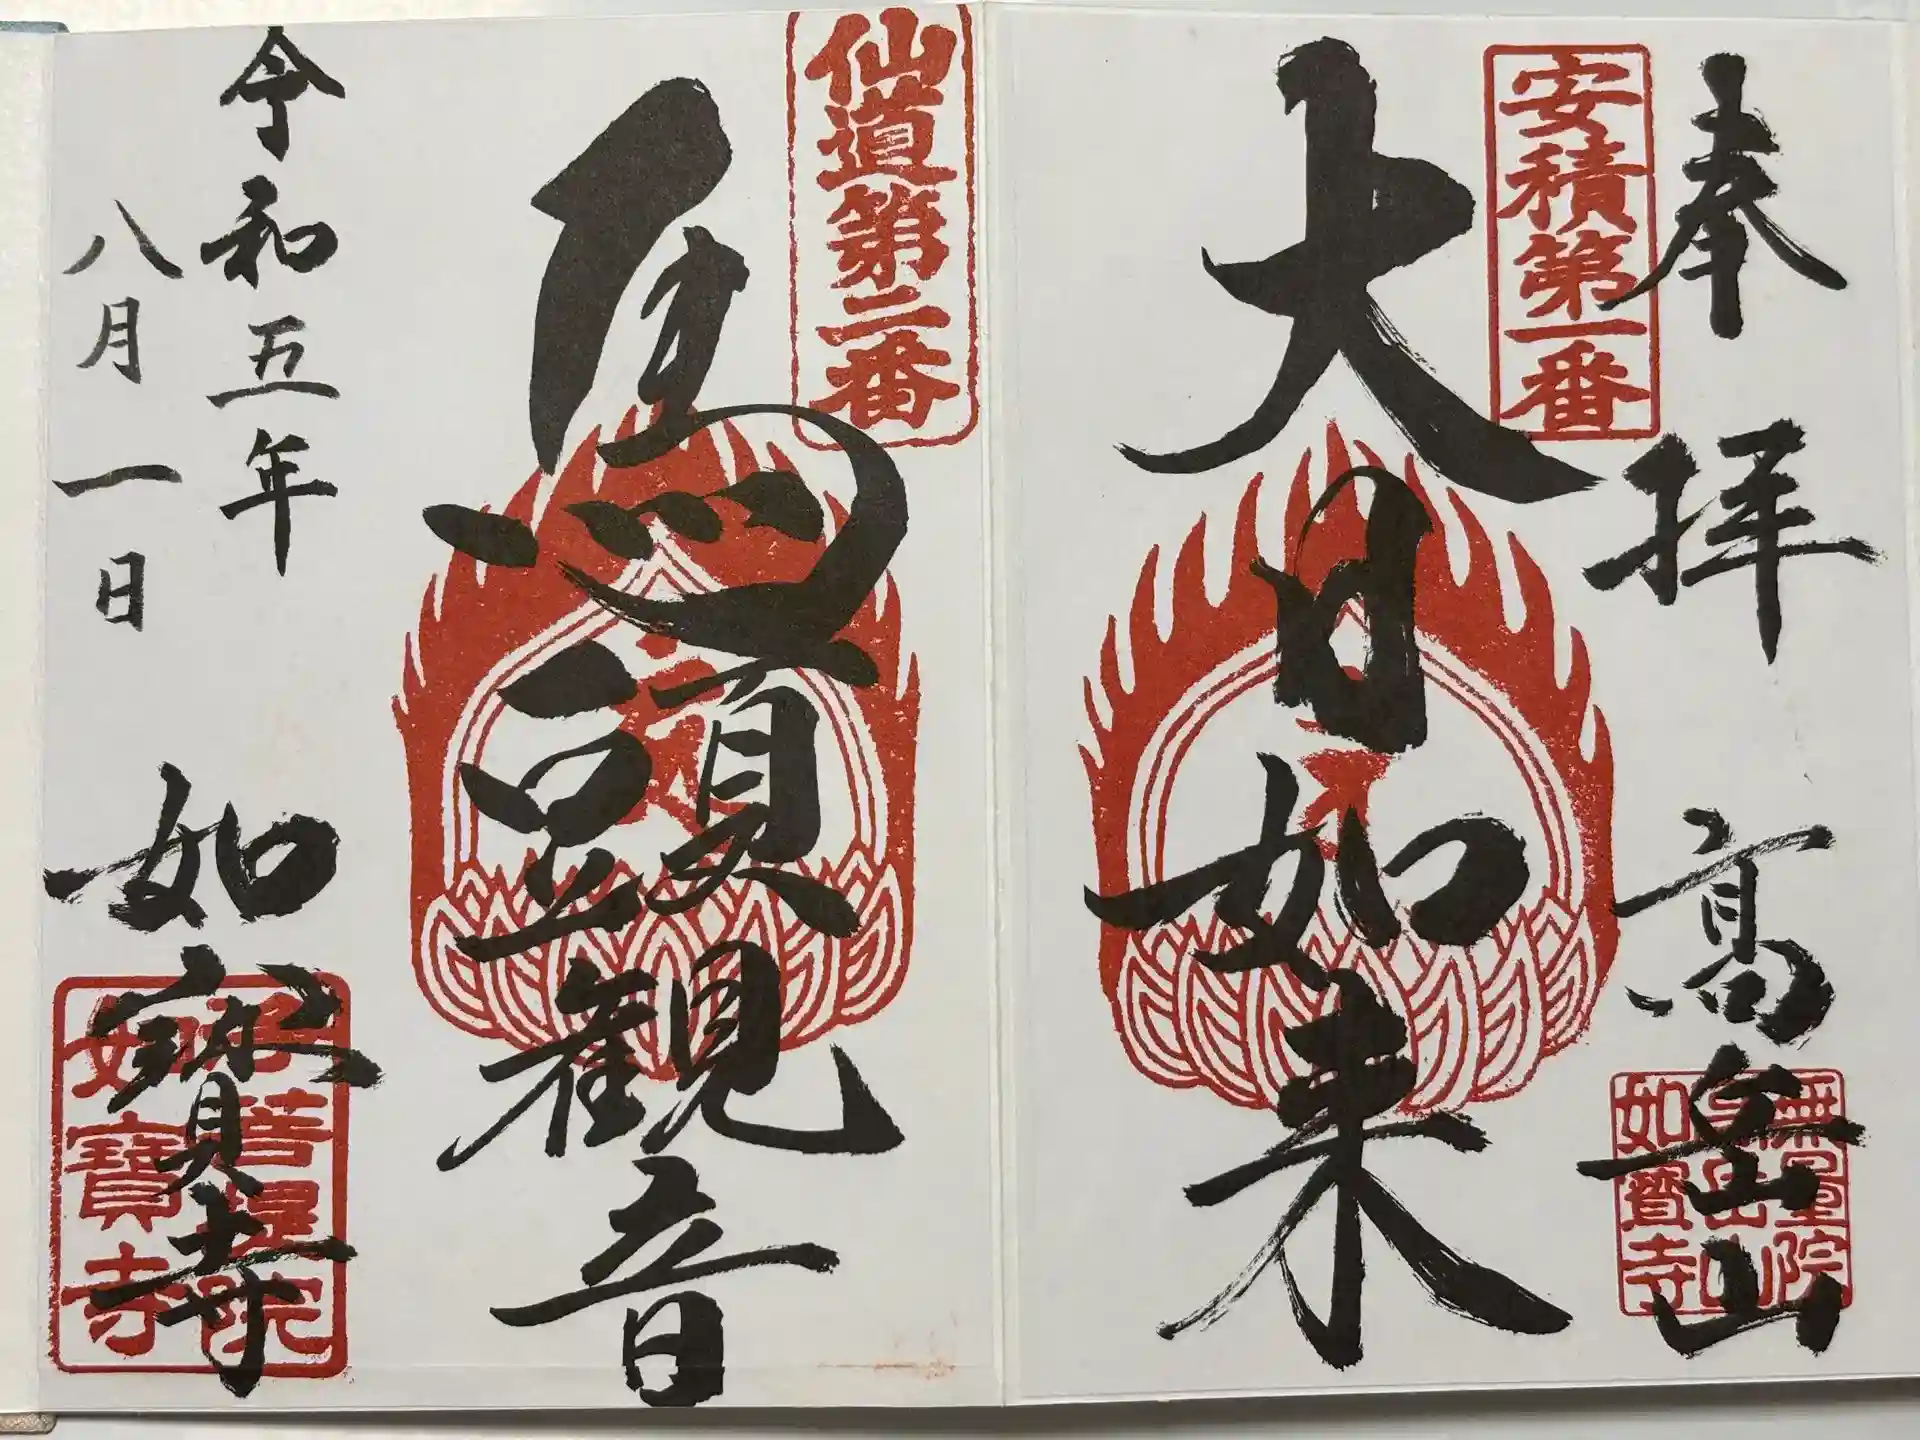 奉拝
高岳山
安積第一番
大日如来
無量院
如寶寺
仙道第二番
馬頭観音
令和五年
八月一日
如寳寺
菩提院
如寶寺